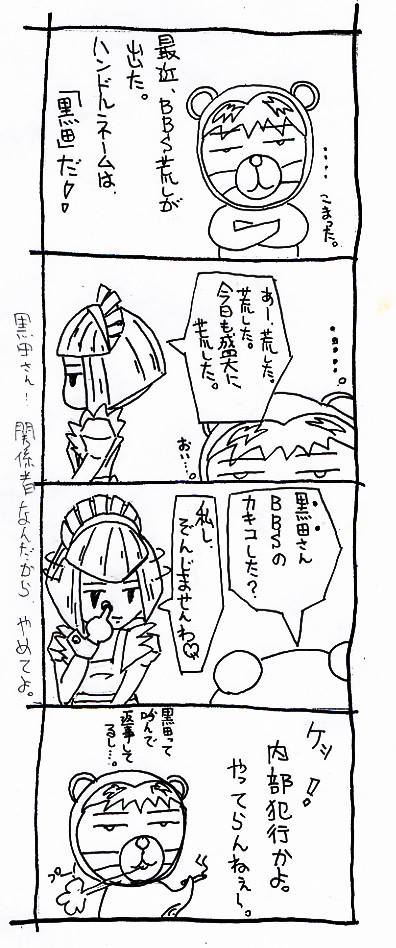 最近、BBS荒しが
出た。
ハンドルネームは、
「黒田」だ!!
・・・・
こまった。
・・・・・。
あー、荒した。
荒した。
今日も盛大に
荒した。
おい…。
黒田さん
BBSの
カキコした?
私し、
ぞんじませんわ♡
ケッ!
内部犯行かよ。
やってらんねぇら。
黒田って
呼んで
返事して
るし…。
プー
黒田さん!関係者なんだから、やめてよ。